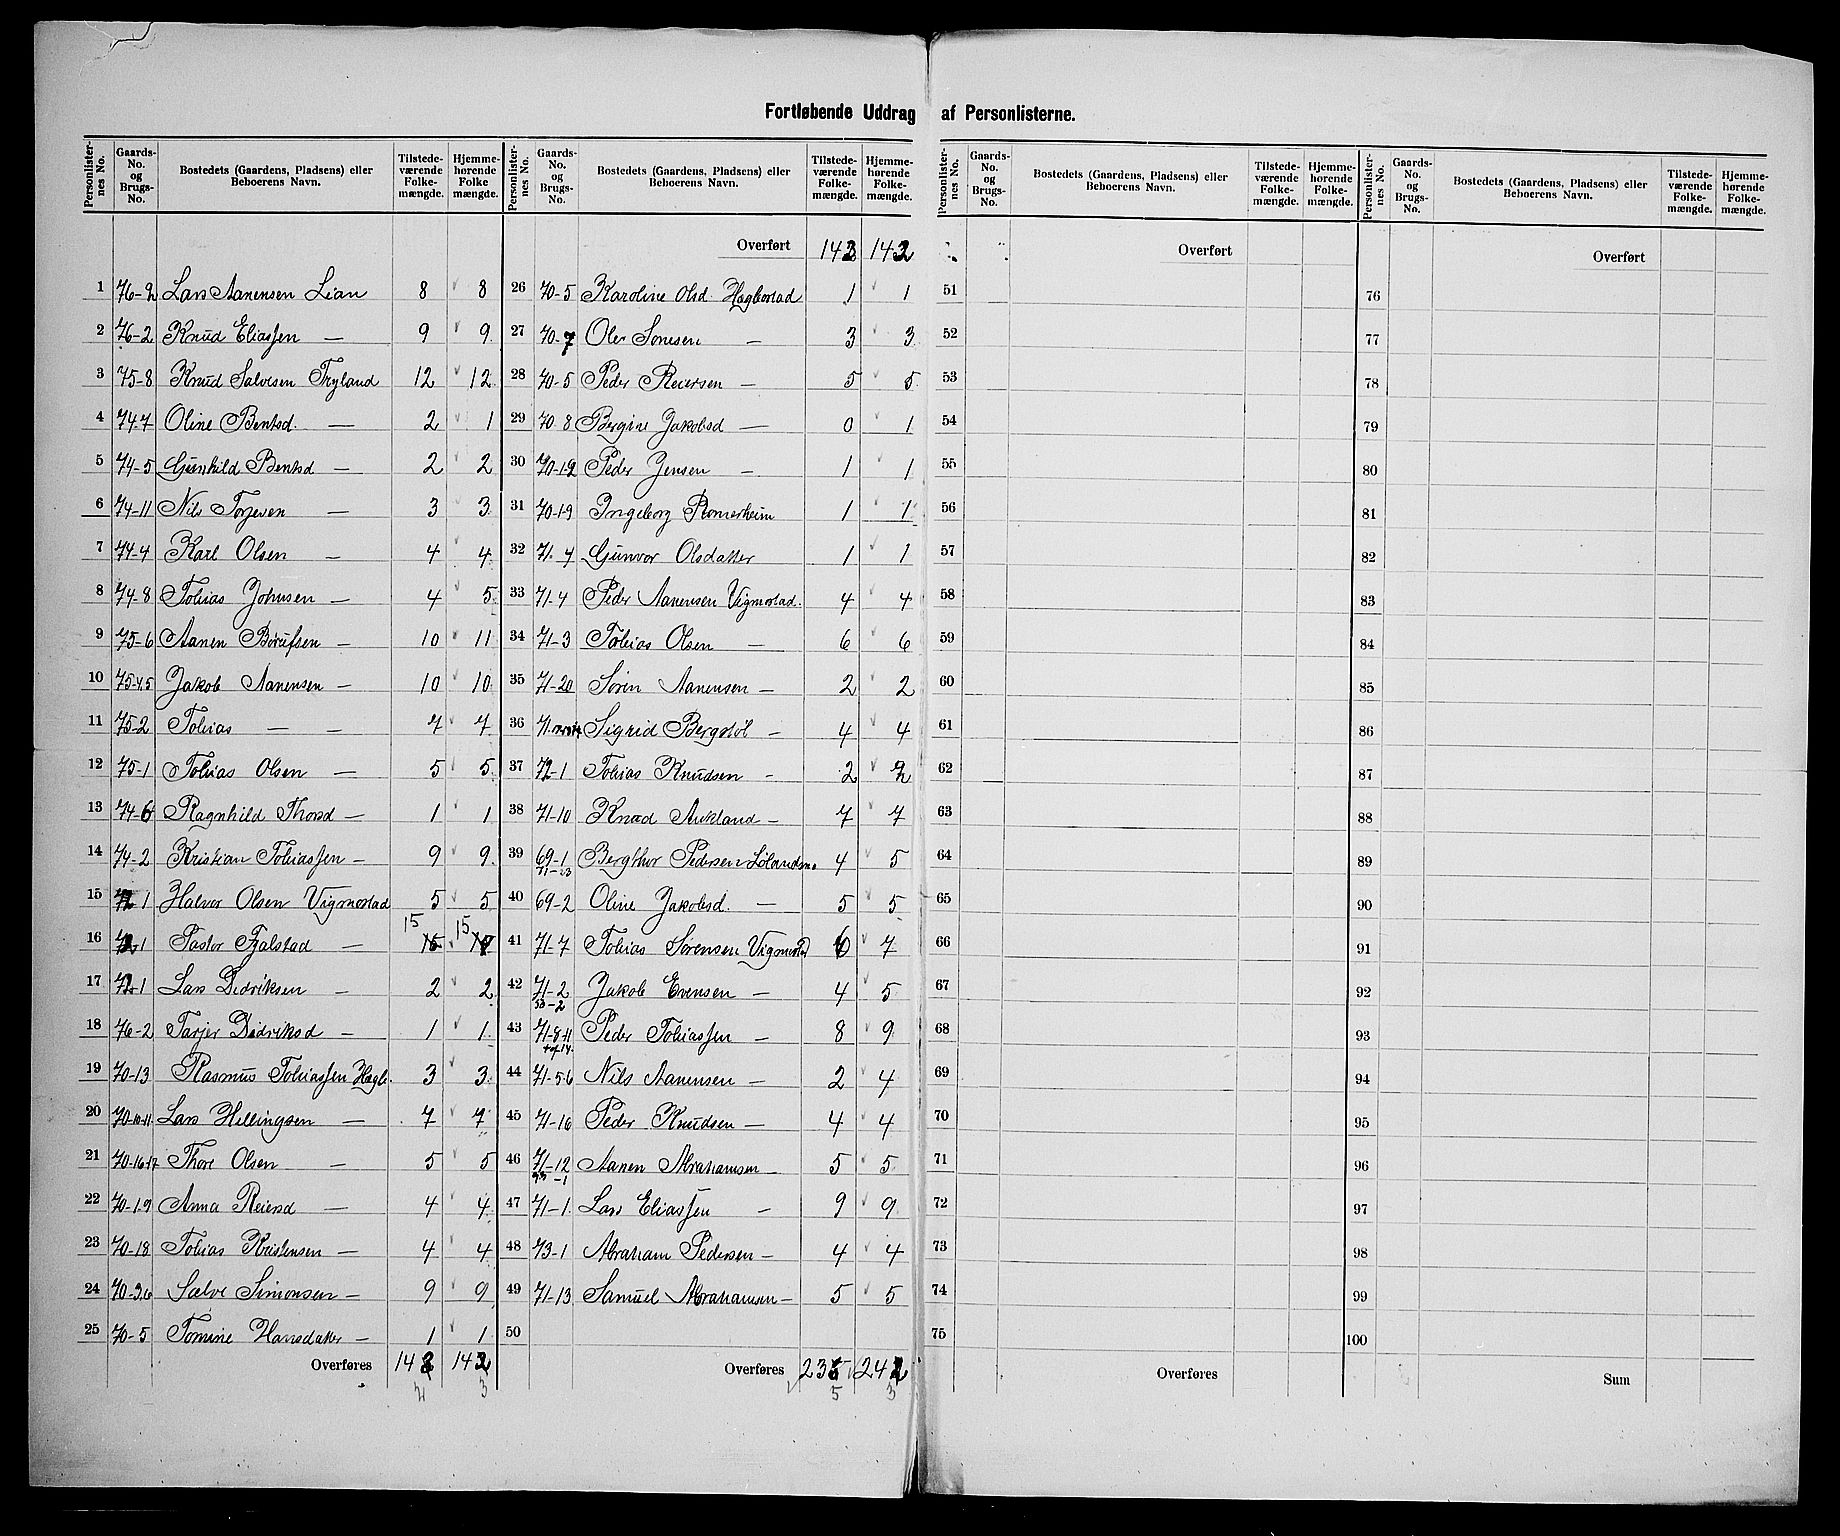 Fortløbende Uddrag af Personlisterne.
Personlister-nes No. Gaards-No. og Brugs-No. Bostedets (Gaardens, Pladsens) eller Beboerens Navn. Tilstede-værende Folke-mængde. Hjemme-hørende Folke mængde.
1 76-2 Lars Aanensen Lian 8 8
2 76-2 Knud Eliassen — 9 9
3 75-8 Knud Salvesen Tryland 12 12
4 74-7 Oline Bentsd. — 2 1
5 74-5 Gunhild Bentsd — 2 2
6 74-11 Nils Torjesen — 3 3
7 74-4 Karl Olsen — 4 4
8 74-8 Tobias Johnsen — 4 5
9 75-6 Aanen Börufsen — 10 11
10 75-4.5 Jakob Aanensen — 10 10
11 75-2 Tobias — — 7 7
12 75-1 Tobias Olsen — 5 5
13 74-6 Ragnhild Thorsd — 1 1
14 74-2 Kristian Tobiassen — 9 9
15 72-1 Halvor Olsen Vigmostad 5 5
16 72-1 Pastor Fjalstad — 15 15
17 72-1 Lars Didriksen — 2 2
18 76-2 Tarjer Didriksd — 1 1
19 70-13 Rasmus Tobiassen Hægb. 3 3
20 70-10-11 Lars Hellingsen — 7 7
21 70-16-17 Thore Olsen — 5 5
22 70-1.9 Anna Reiersd — 4 4
23 70-18 Tobias Kristensen — 4 4
24 70-3.6 Salve Simonsen — 9 9
25 70-5 Tomine Hansdatter — 1 1
Overføres 142 143
Personlister-nes No. Gaards-No. og Brugs-No. Bostedets (Gaardens, Pladsens) eller Beboerens Navn. Tilstede-værende Folke-mængde. Hjemme-hørende Folke-mængde.
Overført 142 142
26 70-5 Karoline Olsd. Hægbostad 1 1
27 70-7 Ole Sonesen — 3 3
28 70-5 Peder Reiersen — 5 5
29 70 8 Bergine Jakobsd — 0 1
30 70-12 Peder Jensen — 1 1
31 70-19 Ingeborg Romerheim 1 1
32 71-4 Gunvor Olsdatter 1 1
33 71-4 Peder Aanensen Vigmostad. 4 4
34 71-3 Tobias Olsen — 6 6
35 71-20 Sören Aanensen — 2 2
36 71. Sigrid Bergstöl — 4 4
37 72-1 Tobias Knudsen — 2 2
38 71-10 Knud Aukland — 7 7
39 69-1 71-23 Bergthor Pedersen Lölandsmo 4 5
40 69-2 Oline Jakobsd. — 5 5
41 71-7 Tobias Sörensen Vigmostd 6 7
42 71-2 53-2 Jakob Evensen — 4 5
43 71-8-11 Peder Tobiassen — 8 9
44 71-5.6 Nils Aanensen — 2 4
45 71-16 Peder Knudsen — 4 4
46 71-12 53-1 Aanen Abrahamsen — 5 5
47 71-1 Lars Eliassen — 9 9
48 73-1 Abraham Pedersen — 4 4
49 71-13 Samuel Abrahamsen — 5 5
50
Overføres 235 243
Personlister-nes No. Gaards-No. og Brugs-No. Bostedets (Gaardens, Pladsens) eller Beboerens Navn. Tilstede-værende Folke-mængde. Hjemme-hørende Folke-mængde.
Overført
51
52
53
54
55
56
57
58
59
60
61
62
63
64
65
66
67
68
69
70
71
72
73
74
75
Overføres
Personlister-nes No. Gaards-No. og Brugs-No. Bostedets (Gaardens, Pladsens) eller Beboerens Navn. Tilstede-værende Folke-mængde. Hjemme-hørende Folke-mængde.
Overført
76
77
78
79
80
81
82
83
84
85
86
87
88
89
90
91
92
93
94
95
96
97
98
99
100
Sum